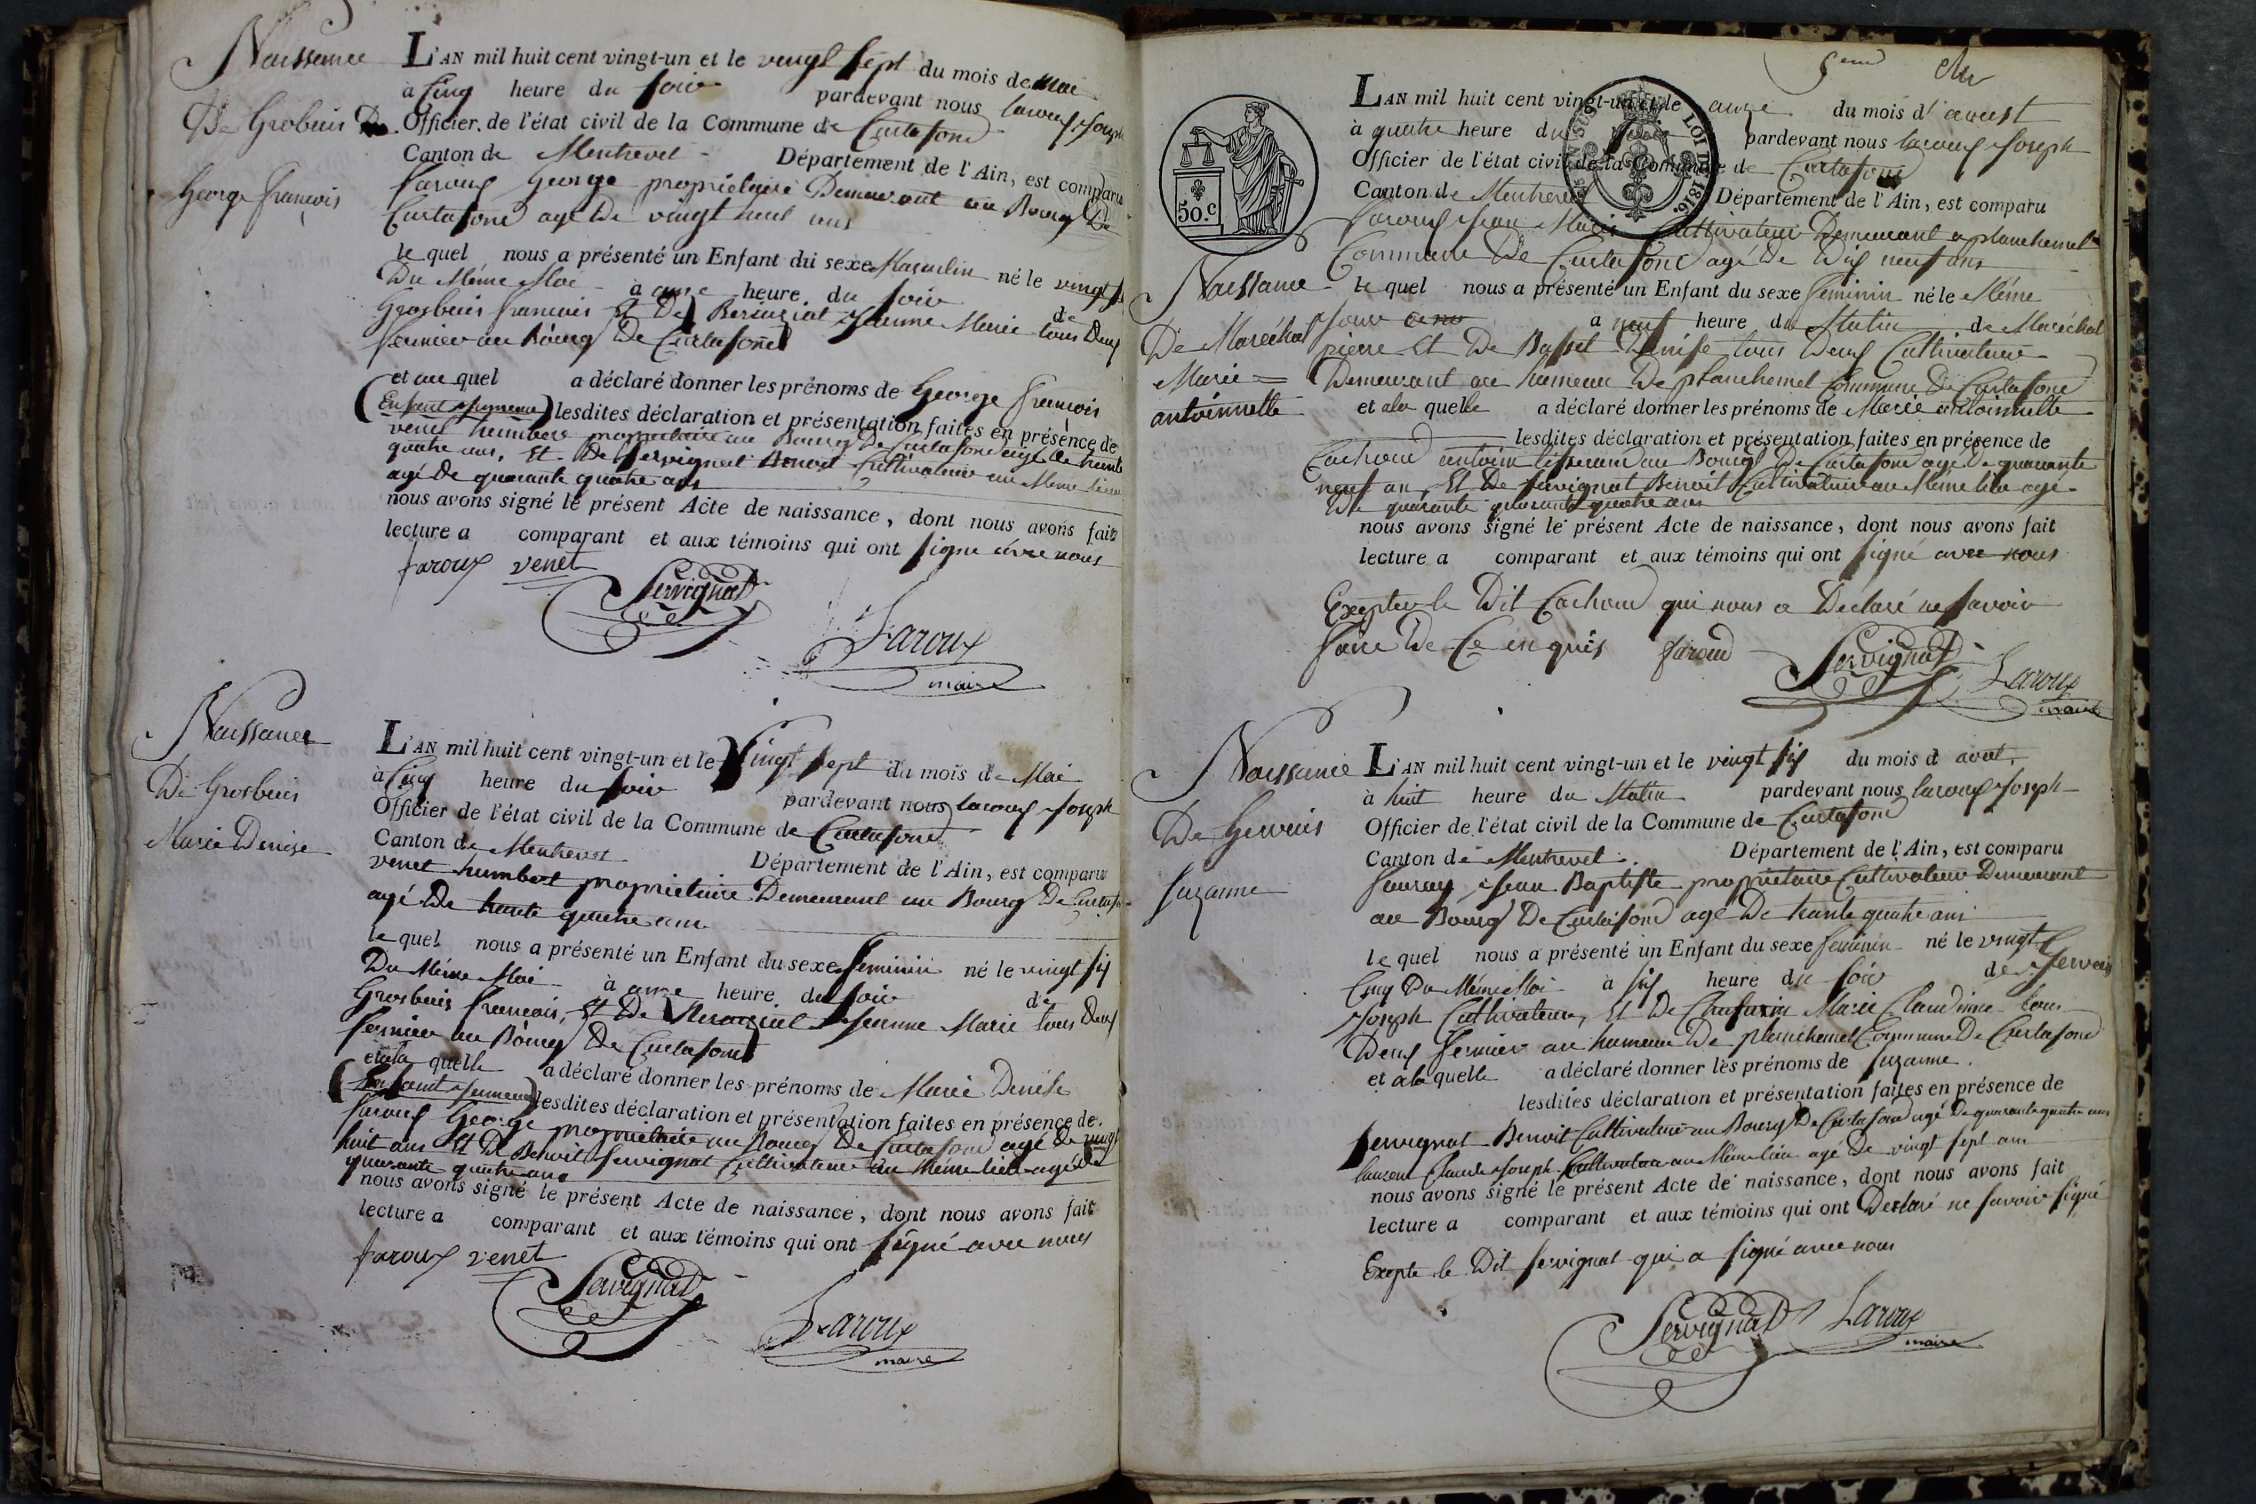 Naissance
De Grobuis
George françois
L'AN mil huit cent vingt-un et le vingt sept du mois de Mai
à Cinq heure du soir pardevant nous Laroux Joseph
Officier de l'état civil de la Commune de Curtafond
Canton de Montrevel Département de l'Ain, est comparu
Faroux George propriétaire Demeurant au Bourg De
Curtafond agé De vingt huit ans
le quel nous a présenté un Enfant du sexe Masculin né le vingt
Du Même Moi à onze heure du soir de
Grosbuis francois Et De Jeanne Marie tous Deux
fermier au Bourg De Curtafond
et au quel a déclaré donner les prénoms de George françois
(Enfant Jumeau) lesdites déclaration et présentation faites en présence de
venet humbert propriétaire au Bourg De Curtafond agé de trente
quatre ans, Et De Servignat Benoit Cultivateur au Même lieu
agé De quarante quatre ans
nous avons signé le présent Acte de naissance, dont nous avons fait
lecture a comparant et aux témoins qui ont signé avec nous
faroux venet
Servignat
Laroux
maire
Naissance
De Grosbuis
Marie Denise
L'AN mil huit cent vingt-un et le Vingt sept du mois de Mai
à Cinq heure du soir pardevant nous Laroux Joseph
Officier de l'état civil de la Commune de Curtafond
Canton de Montrevel Département de l'Ain, est comparu
venet humbert propriétaire Demeurant au Bourg De Curtafond
agé De trente quatre ans
le quel nous a présenté un Enfant du sexe feminin né le vingt six
Du Même Moi à onze heure du soir de
Grosbuis francois, Et De Jeanne Marie tous Deux
fermier au Bourg De Curtafond
et a la quelle a déclaré donner les prénoms de Marie Denise
(Enfant Jumeau) lesdites déclaration et présentation faites en présence de
faroux George propriétaire au Bourg De Curtafond agé De vingt
huit ans Et De Benoit Servignat Cultivateur au Même lieu agé De
quarante quatre ans
nous avons signé le présent Acte de naissance, dont nous avons fait
lecture a comparant et aux témoins qui ont signé avec nous
faroux venet
Servignat
Laroux
maire
5eme
50.c
LOI DE 1816.
Naissance
De Maréchal
Marie
antoinnette
L'AN mil huit cent vingt-un et le onze du mois d'avust
à quatre heure du pardevant nous Laroux Joseph
Officier de l'état civil de la Commune de Curtafond
Canton de Montrevel Département de l'Ain, est comparu
Jean Marie Cultivateur Demeurant a planchemel
Commune De Curtafond agé De Dix neuf ans
le quel nous a présenté un Enfant du sexe feminin né le Même
Jour a neuf heure du Matin de Maréchal
pierre Et De Basset Denise tous Deux Cultivateur
Demeurant au hameau De planchemel Commune De Curtafond
et a la quelle a déclaré donner les prénoms de Marie antoinnette
lesdites déclaration et présentation faites en présence de
Cachoud antoine tisserand au Bourg De Curtafond agé De quarante
neuf an, Et De Servignat Benoit Cultivateur au Même lieu agé
De quarante quarante quatre ans
nous avons signé le présent Acte de naissance, dont nous avons fait
lecture a comparant et aux témoins qui ont signé avec nous
Exepter le Dit Cachoud qui nous a Déclaré ne savoir
faire De Ce enquis faroud Servignat Laroux
maire
Naissance
De Gervais
Suzanne
L'AN mil huit cent vingt-un et le vingt six du mois d avut
à huit heure du Matin pardevant nous Laroux Joseph
Officier de l'état civil de la Commune de Curtafond
Canton de Montrevel Département de l'Ain, est comparu
Jean Baptiste propriétaire Cultivateur Demeurant
au Bourg De Curtafond agé De trente quatre ans
le quel nous a présenté un Enfant du sexe feminin né le vingt
Cinq Du Même Moi à six heure du soir de Gervais
Joseph Cultivateur, Et De Marie Claudinne tous
Deux fermier au hameau De planchemel Commune De Curtafond
et a la quelle a déclaré donner les prénoms de Suzanne
lesdites déclaration et présentation faites en présence de
Servignat Benoit Cultivateur au Bourg De Curtafond agé De quarante quatre ans
Claude Joseph Cultivateur au Même lieu agé De vingt sept ans
nous avons signé le présent Acte de naissance, dont nous avons fait
lecture a comparant et aux témoins qui ont Déclaré ne savoir signé
Exepte le Dit Servignat qui a signé avec nous
Servignat Laroux
maire